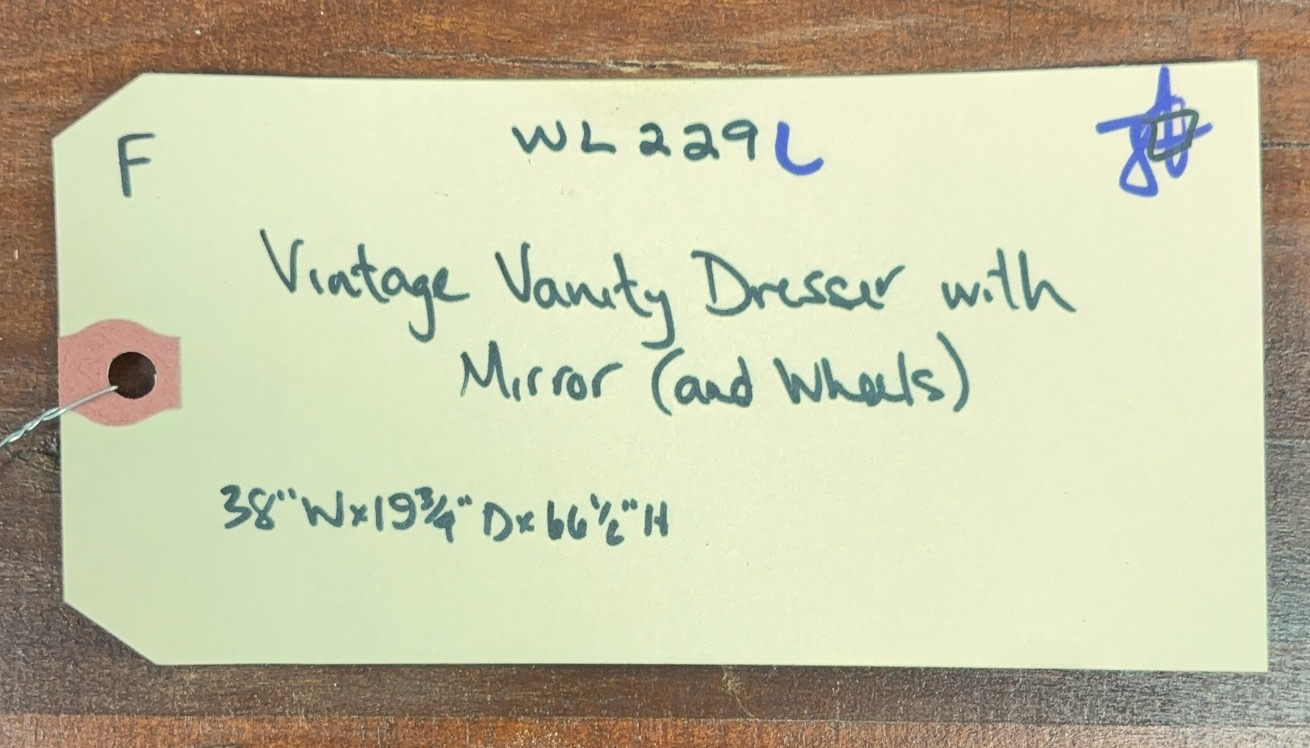 F WL229L
Vintage Vanity Dresser with
Mirror (and Wheels)
38" W x 19 3/4" D x 66 1/2" H